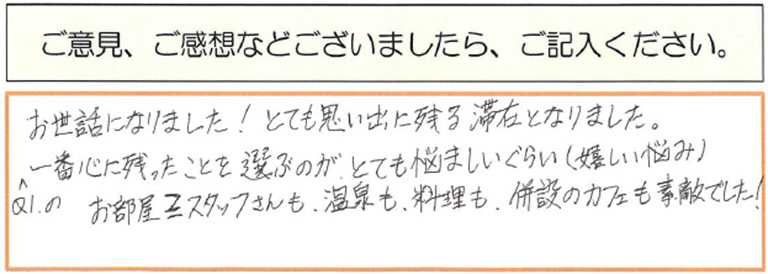 ご意見、ご感想などございましたら、ご記入ください。
お世話になりました！とても思い出に残る滞在となりました。
一番心に残ったことを選ぶのが、とても悩ましいぐらい（嬉しい悩み）
^Q1.の お部屋もスタッフさんも、温泉も、料理も、併設のカフェも素敵でした！